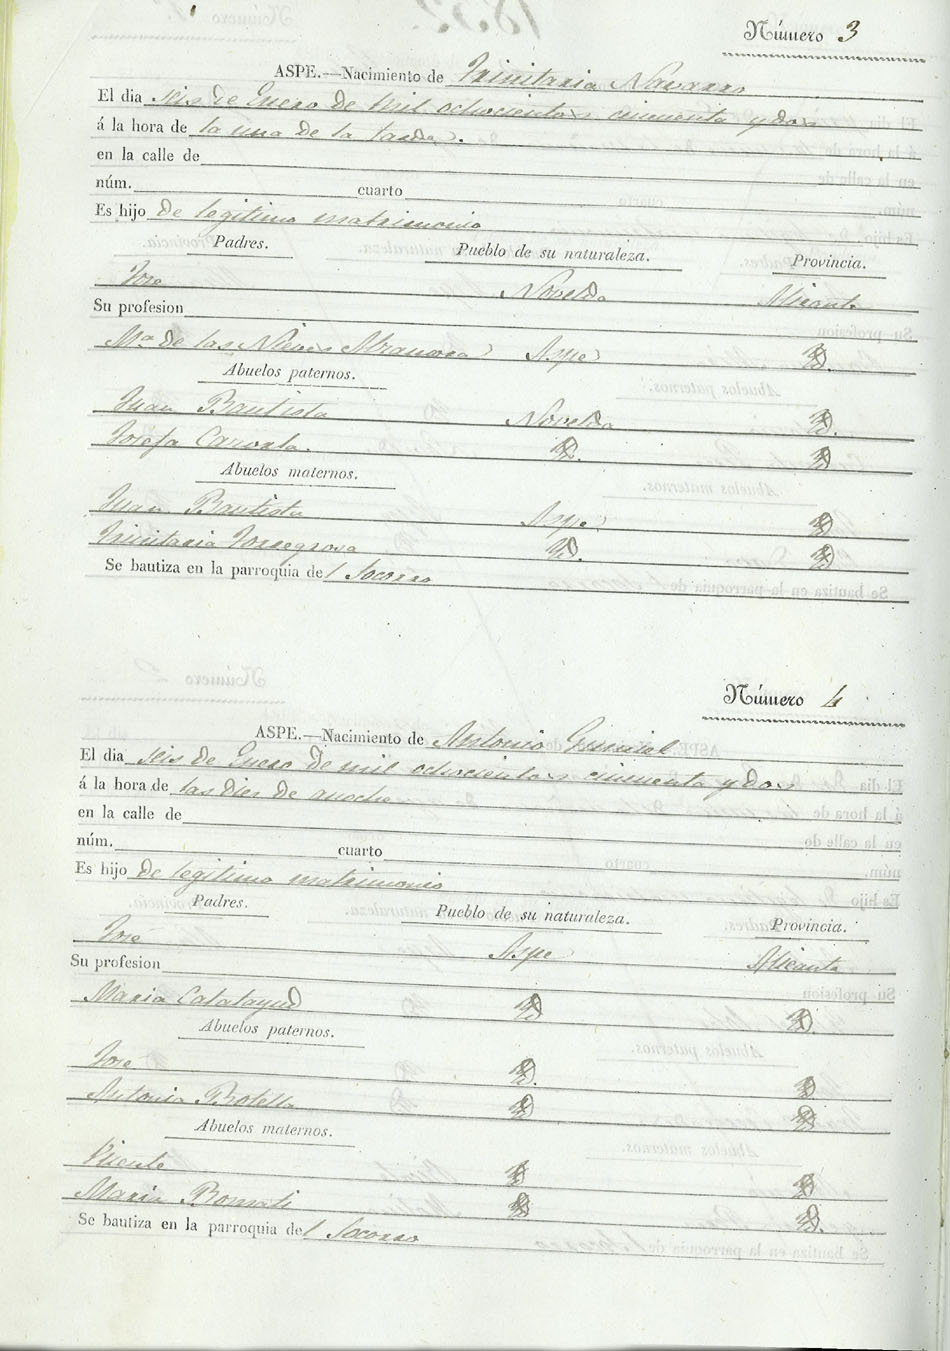 Número 3
ASPE.—Nacimiento de Trinitaria Navarro
El dia seis de Enero de mil ochocientos cincuenta y dos
á la hora de la una de la tarde.
en la calle de
núm. cuarto
Es hijo de legitimo matrimonio
Padres. Pueblo de su naturaleza. Provincia.
Jose Novelda Alicante
Su profesion
Mª de las Nieves Aspe Id.
Abuelos paternos.
Juan Bautista Novelda Id.
Josefa Id. Id.
Abuelos maternos.
Juan Bautista Aspe Id.
Trinitaria Torregrosa Id. Id.
Se bautiza en la parroquia del Socorro
Número 4
ASPE.—Nacimiento de Antonio
El dia seis de Enero de mil ochocientos cincuenta y dos
á la hora de las dies de anoche
en la calle de
núm. cuarto
Es hijo de legitimo matrimonio
Padres. Pueblo de su naturaleza. Provincia.
Jose Aspe Alicante
Su profesion
Maria Calatayud Id. Id.
Abuelos paternos.
Jose Id. Id.
Antonia Botella Id. Id.
Abuelos maternos.
Vicente Id. Id.
Maria Bonmati Id. Id.
Se bautiza en la parroquia del Socorro